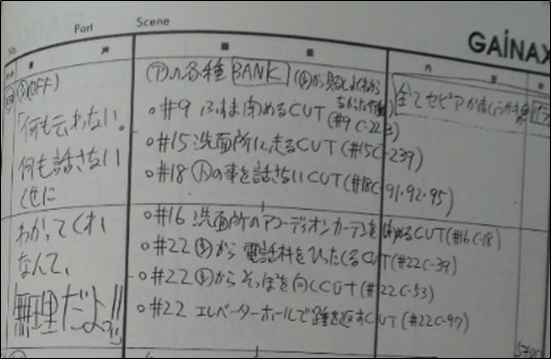 Part
Scene
GAINAX
(OFF)
「何も云わない。
何も話さない
くせに
わかってくれ
なんて、
無理だよ!!」
⑦の各種 BANK
○#9 ふすま閉めるCUT (#9 C-223)
○#15 洗面所に走るCUT (#15C-239)
○#18 の事を話さないCUT (#18C-91・92・95)
○#16 洗面所のアコーディオンカーテンを閉めるCUT (#16C-18)
○#22 から電話料をひったくるCUT (#22C-39)
○#22 からそっぽを向くCUT (#22C-53)
○#22 エレベーターホールで踵を返すCUT (#22C-97)
全てセピアか